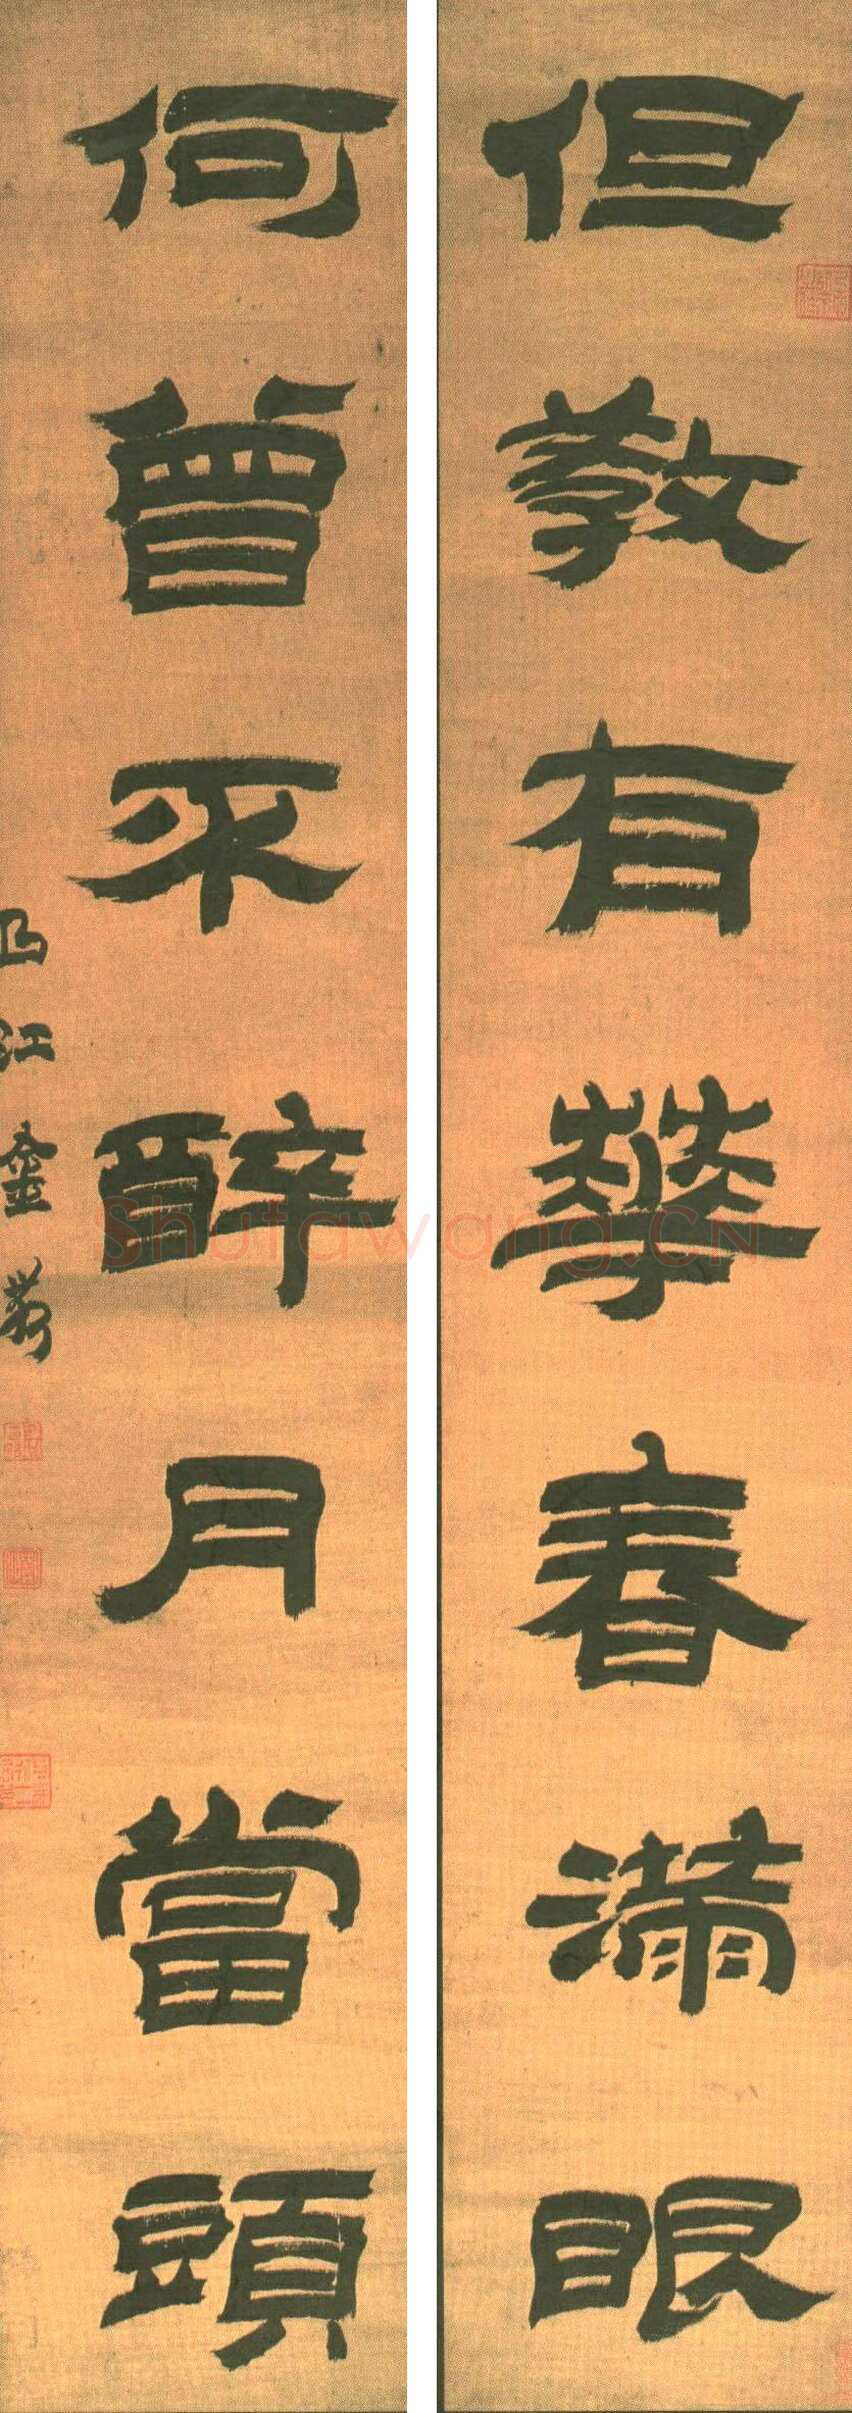 但教有華春滿眼
何曾不醉月當頭
江金
Shufawang.CN